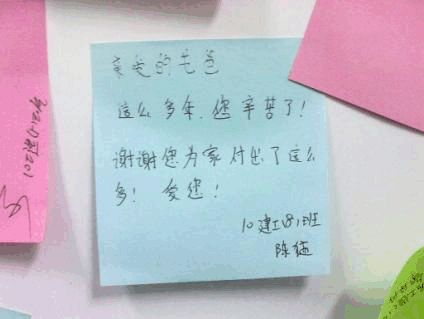 亲爱的老爸
这么多年,您辛苦了!
谢谢您为家付出了这么
多! 爱您!
10建工(8)班
陈